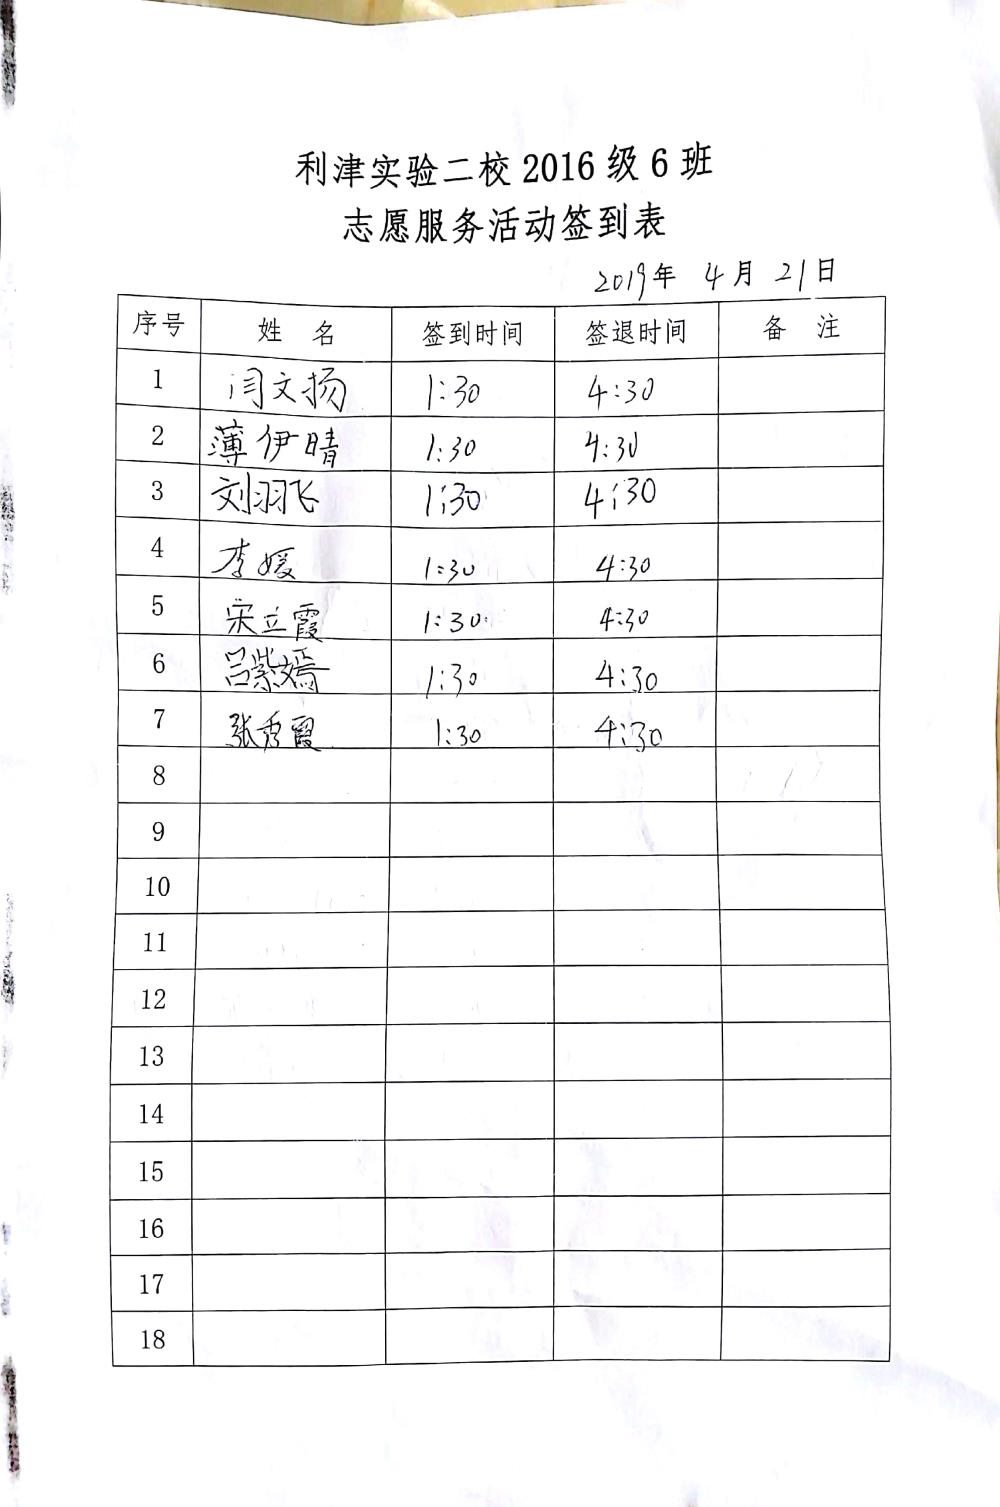 利津实验二校2016级6班
志愿服务活动签到表
2019年 4月 21日
序号 姓 名 签到时间 签退时间 备 注
1 闫文扬 1:30 4:30
2 薄伊晴 1:30 4:30
3 刘羽飞 1:30 4:30
4 李媛 1:30 4:30
5 宋立霞 1:30 4:30
6 吕紫嫣 1:30 4:30
7 张秀霞 1:30 4:30
8
9
10
11
12
13
14
15
16
17
18